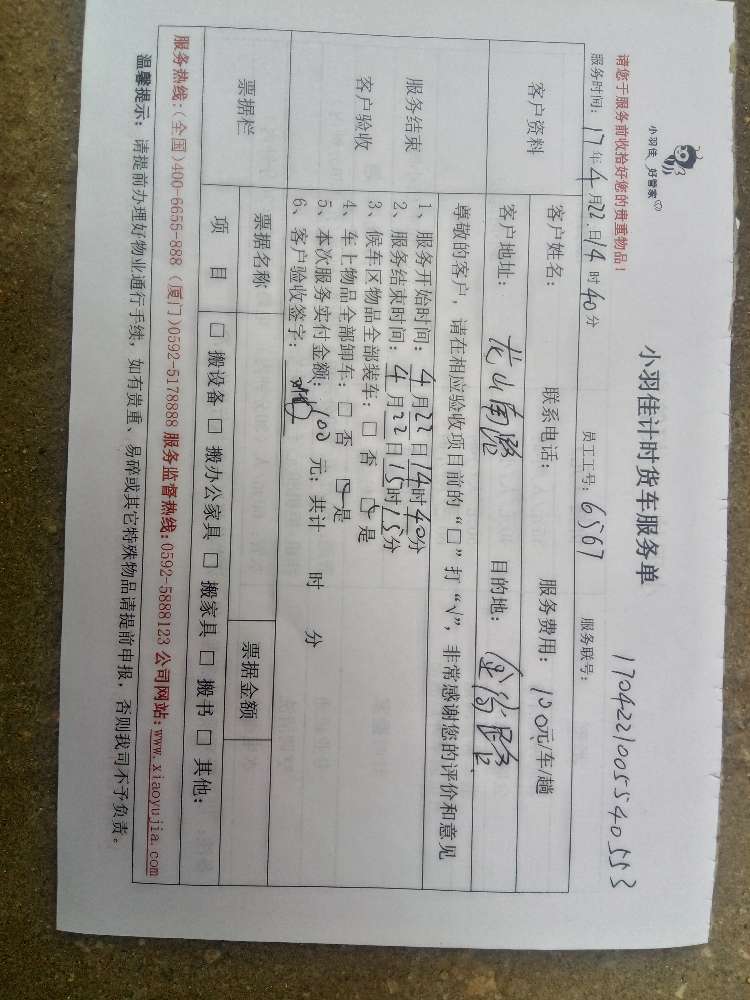 小羽佳 好管家
小羽佳计时货车服务单
请您于服务前收拾好您的贵重物品！
17042210055540553
服务时间：17年4月22日14时40分 员工工号：6567 服务联号：
客户资料
客户姓名： 联系电话： 服务费用：100元/车/趟
客户地址：龙山南路 目的地：
服务结束
客户验收
尊敬的客户，请在相应验收项目前的“□”打“√”，非常感谢您的评价和意见
1、服务开始时间：4月22日14时40分
2、服务结束时间：4月22日15时15分
3、候车区物品全部装车：□ 否 □ 是
4、车上物品全部卸车：□ 否 □ 是
5、本次服务实付金额：100元；共计 时 分
6、客户验收签字：
票据栏
票据名称 票据金额
项 目 □ 搬设备 □ 搬办公家具 □ 搬家具 □ 搬书 □ 其他：
服务热线：(全国)400-6655-888 (厦门)0592-5178888 服务监督热线：0592-5888123 公司网站：www.xiaoyujia.com
温馨提示：请提前办理好物业通行手续，如有贵重、易碎或其它特殊物品请提前申报，否则我司不予负责。